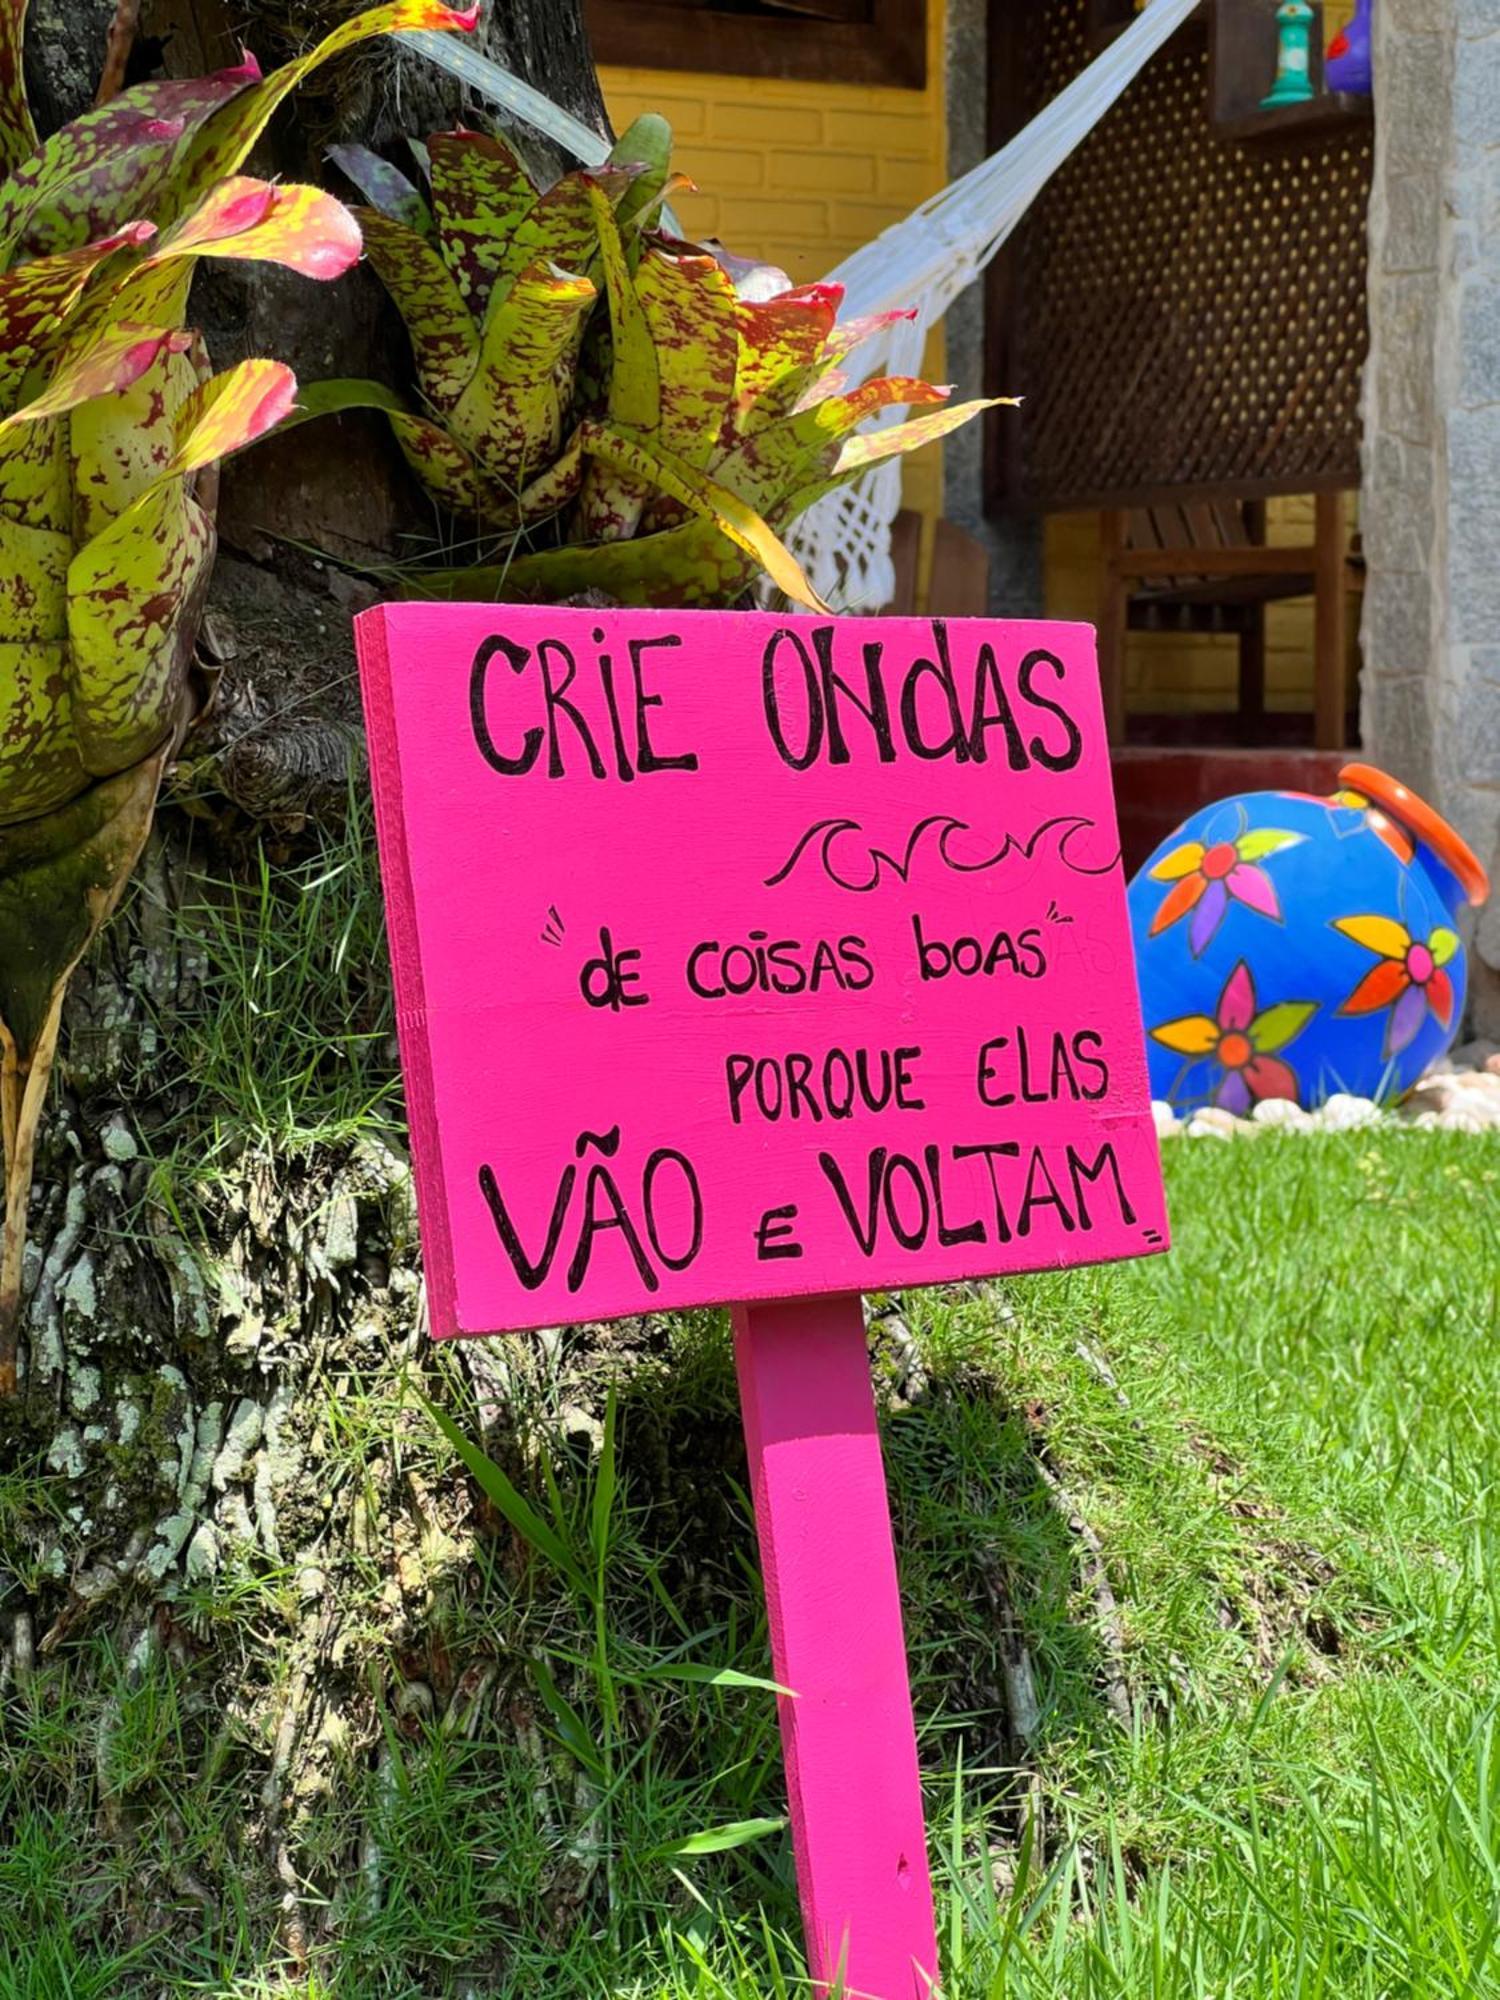 CRiE ONdAS
"dE COiSAS bOAS"
PORQUE ELAS
VÃO E VOLTAM